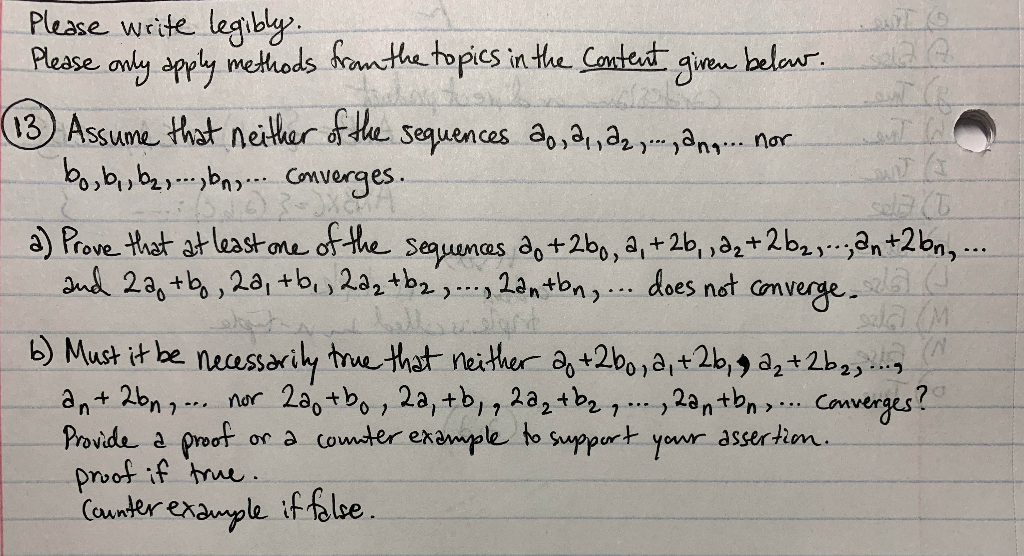 Please write legibly.
Please only apply methods from the topics in the Content given below.
(13) Assume that neither of the sequences a₀, a₁, a₂, ..., aₙ, ... nor
b₀, b₁, b₂, ..., bₙ, ... converges.
a) Prove that at least one of the sequences a₀+2b₀, a₁+2b₁, a₂+2b₂, ..., aₙ+2bₙ, ...
and 2a₀+b₀, 2a₁+b₁, 2a₂+b₂, ..., 2aₙ+bₙ, ... does not converge.
b) Must it be necessarily true that neither a₀+2b₀, a₁+2b₁, a₂+2b₂, ...,
aₙ+2bₙ, ... nor 2a₀+b₀, 2a₁+b₁, 2a₂+b₂, ..., 2aₙ+bₙ, ... converges?
Provide a proof or a counter example to support your assertion.
proof if true.
Counter example if false.